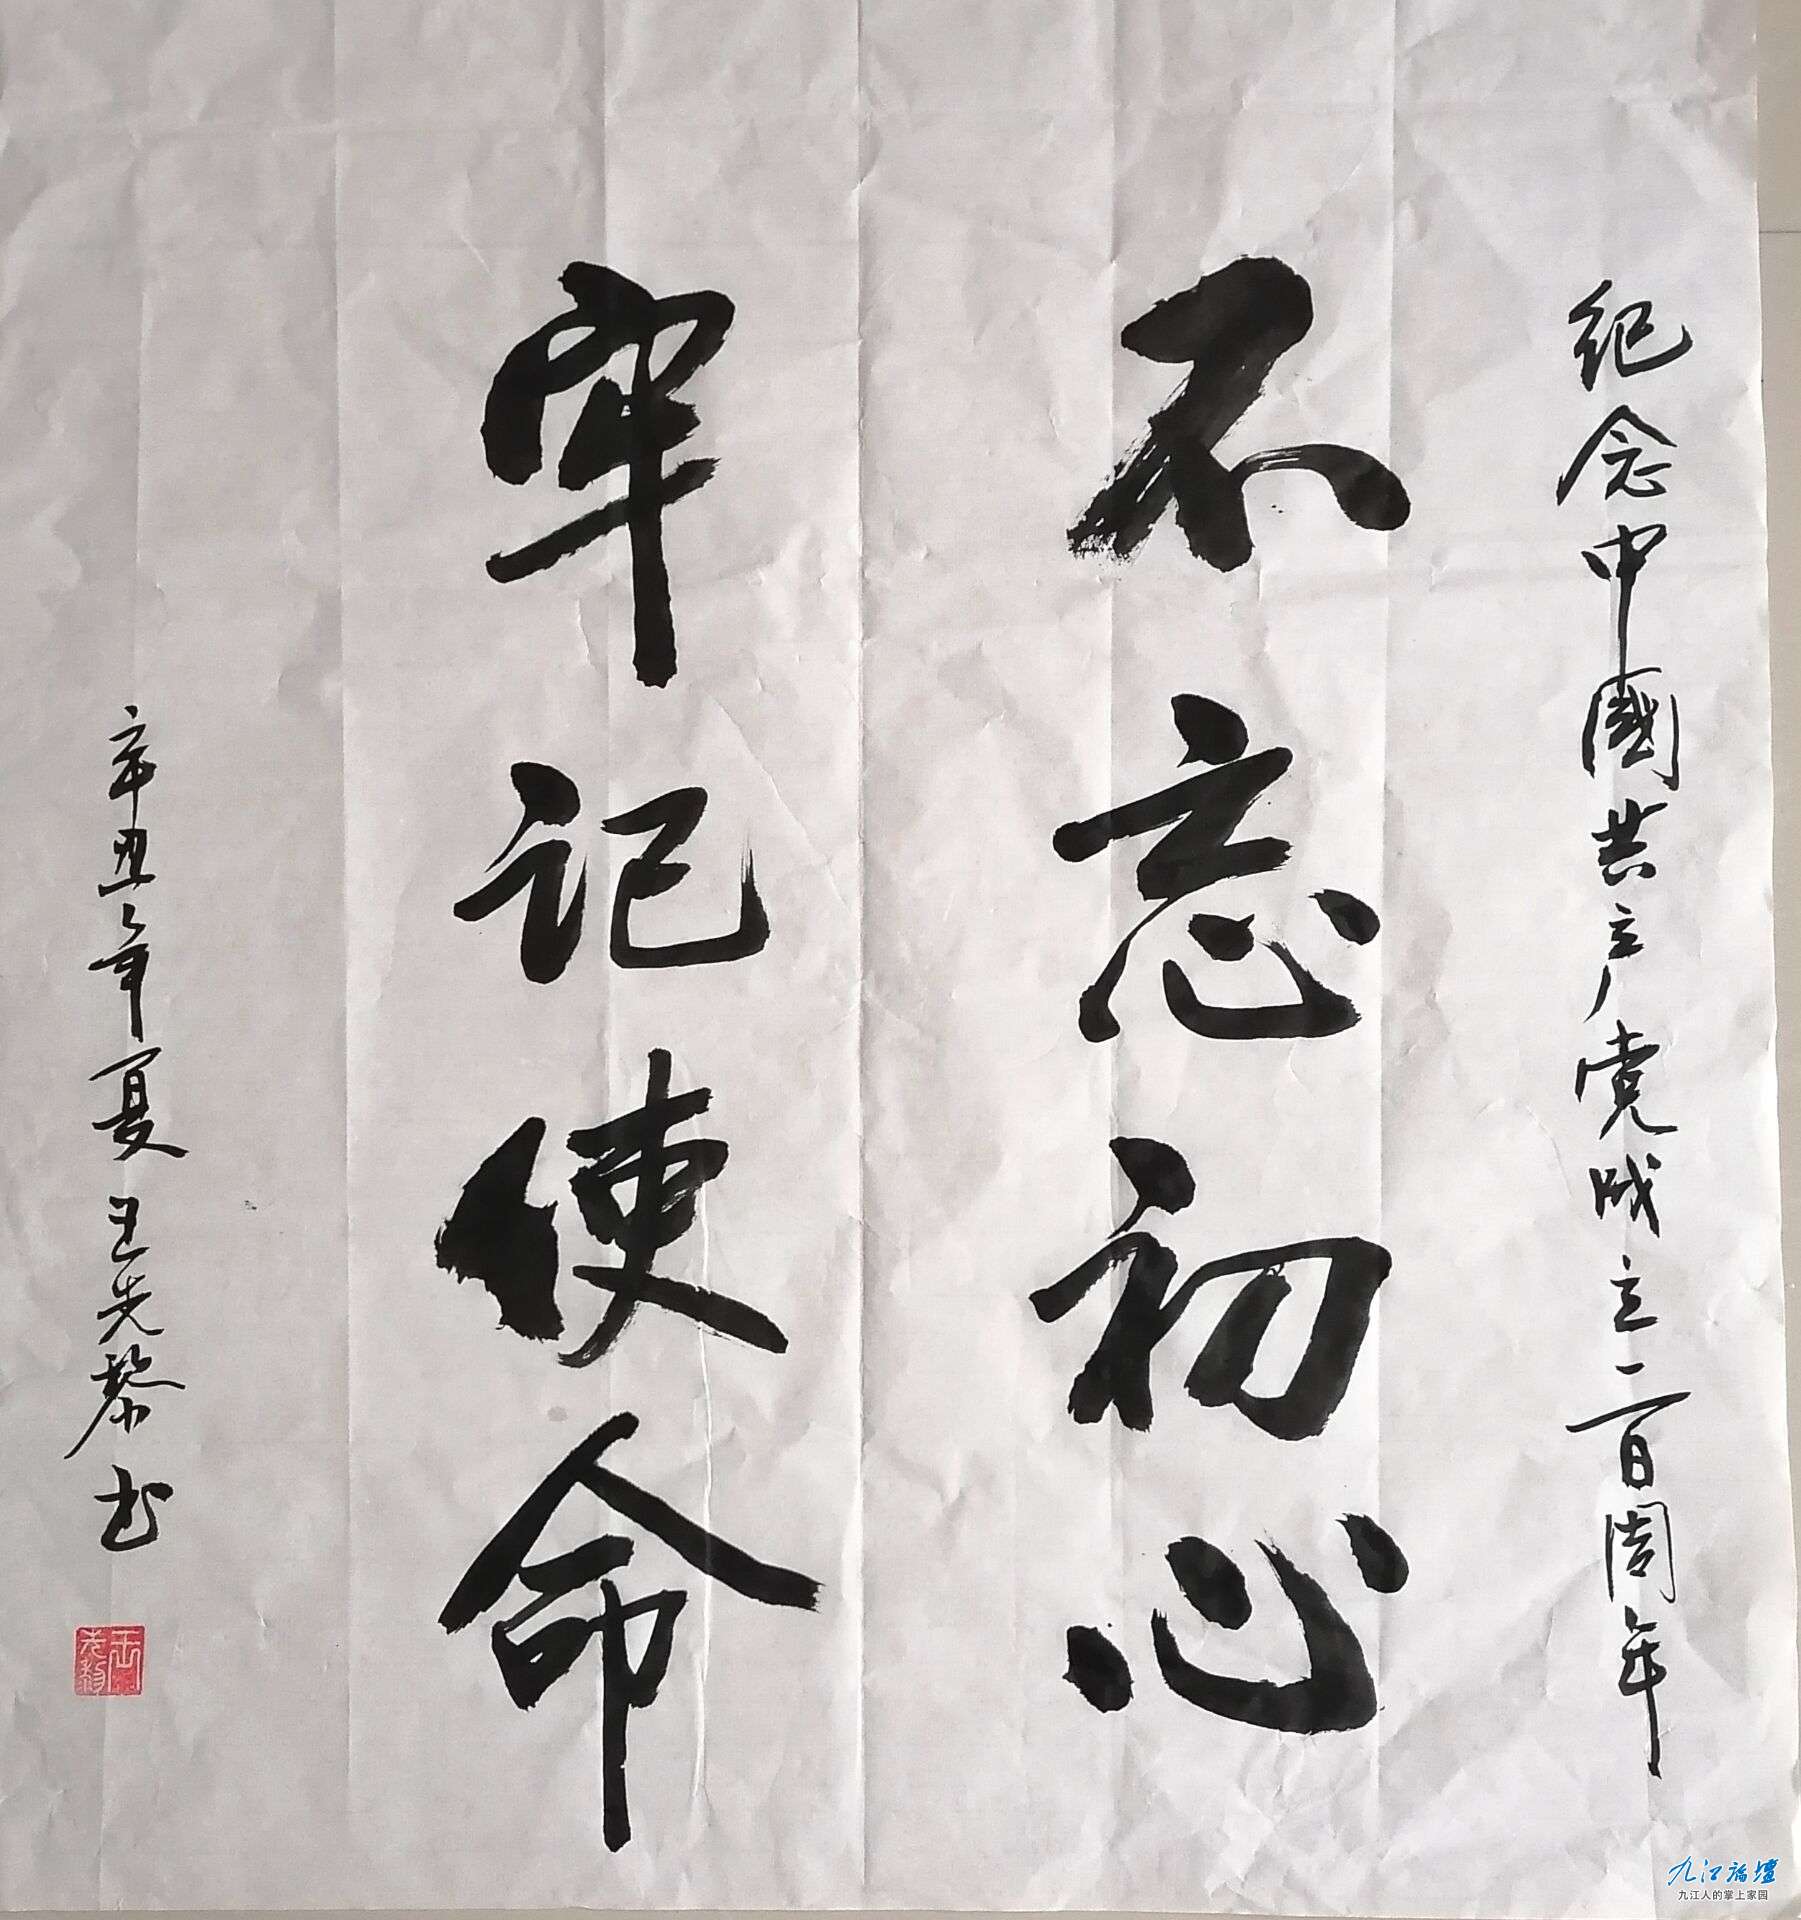 纪念中國共产党成立一百周年
不忘初心
牢记使命
辛丑年夏 王先黎书
九江論壇
九江人的掌上家园